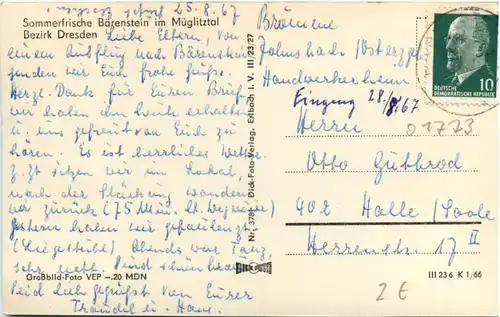 Sommerfrische Bärenstein im Müglitztal
Bezirk Dresden
25.8.67
Liebe Eltern, von
einem Ausflug nach Bärenstein
senden wir Euch frohe Grüße.
Herzl. Dank für Euren Brief
wir haben ihn heute erhalten
u. uns gefreut von Euch zu
hören. Es ist herrliches Wetter.
z.Zt sitzen wir im Lokal,
nach der Stärkung wandern
wir zurück (75 Min. lt. Wegweiser)
gestern haben wir gefaulenzt
(Liegestühle) Abends war Tanz,
sehr nett.
Seid herzl. gegrüßt von Eurer
Traudel u. Hans.
Großbild-Foto VEP -.20 MDN
Nr. 3789 Dick-Foto-Verlag, Erlbach i. V. III/23/27
Handwerkerheim
Eingang 28/8.67
Herrn
Otto Gutbrod
402 Halle/Saale
Herrenstr. 17 II
DEUTSCHE
DEMOKRATISCHE REPUBLIK
10
01773
III 23 6 K 1/66
2 €